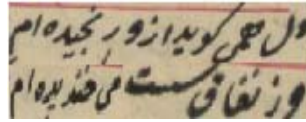 دل همی گوید ازو رنجیده‌ام
وز نفاق سست می خندیده‌ام